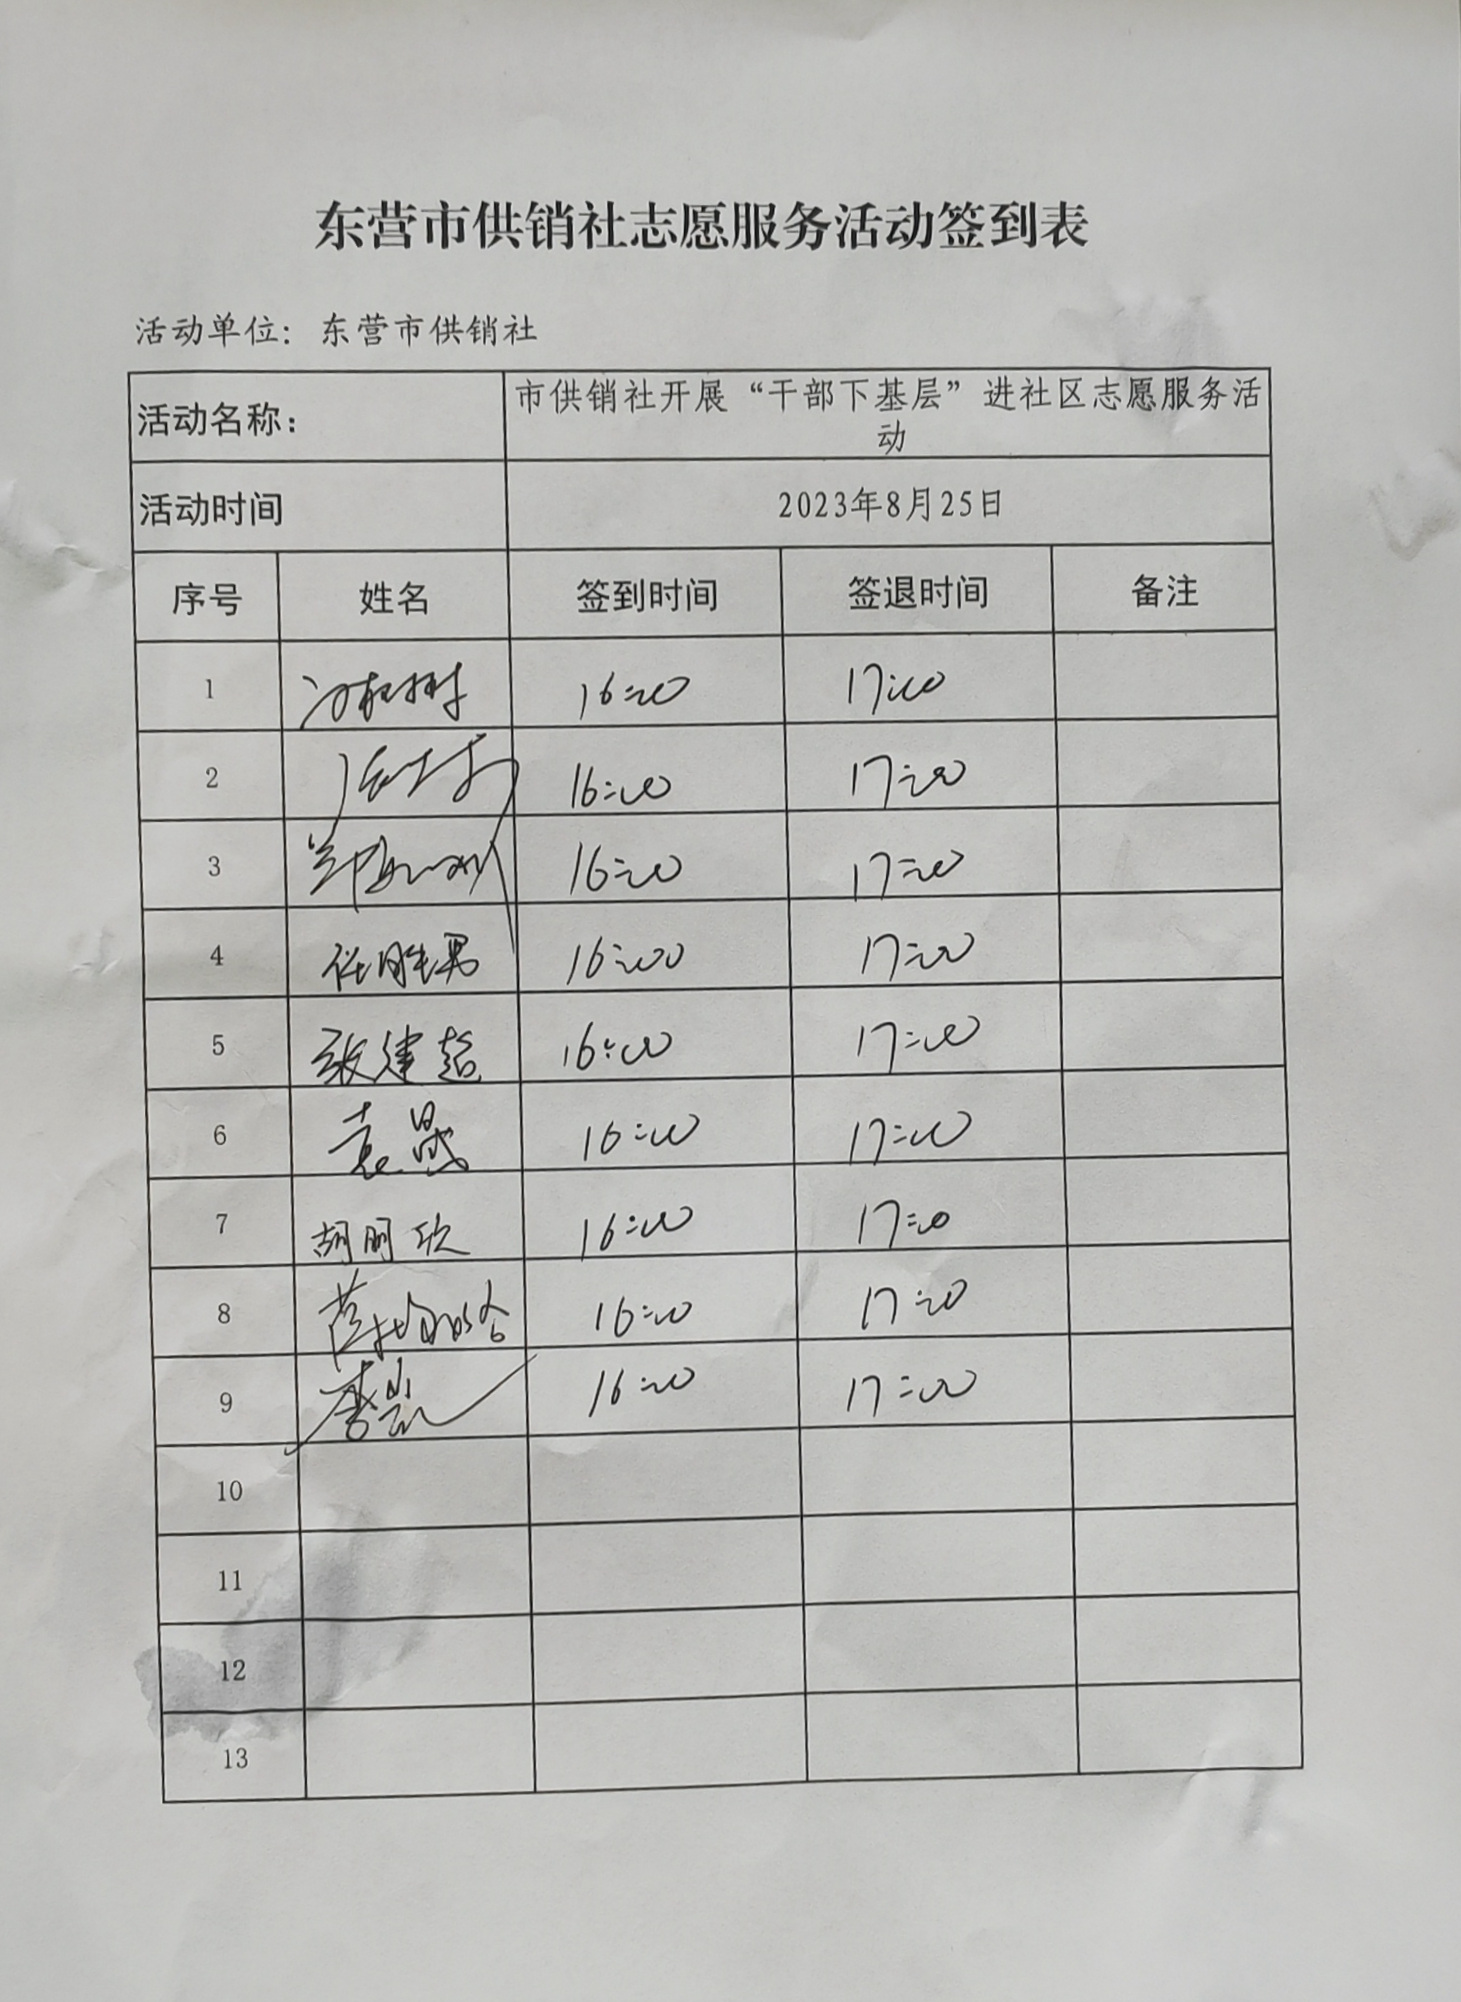 东营市供销社志愿服务活动签到表
活动单位：东营市供销社
活动名称：
市供销社开展“干部下基层”进社区志愿服务活
动
活动时间
2023年8月25日
序号 姓名 签到时间 签退时间 备注
1 16:00 17:00
2 16:00 17:00
3 16:00 17:00
4 任胜男 16:00 17:00
5 张建超 16:00 17:00
6 袁晟 16:00 17:00
7 胡明欣 16:00 17:00
8 16:00 17:00
9 16:00 17:00
10
11
12
13